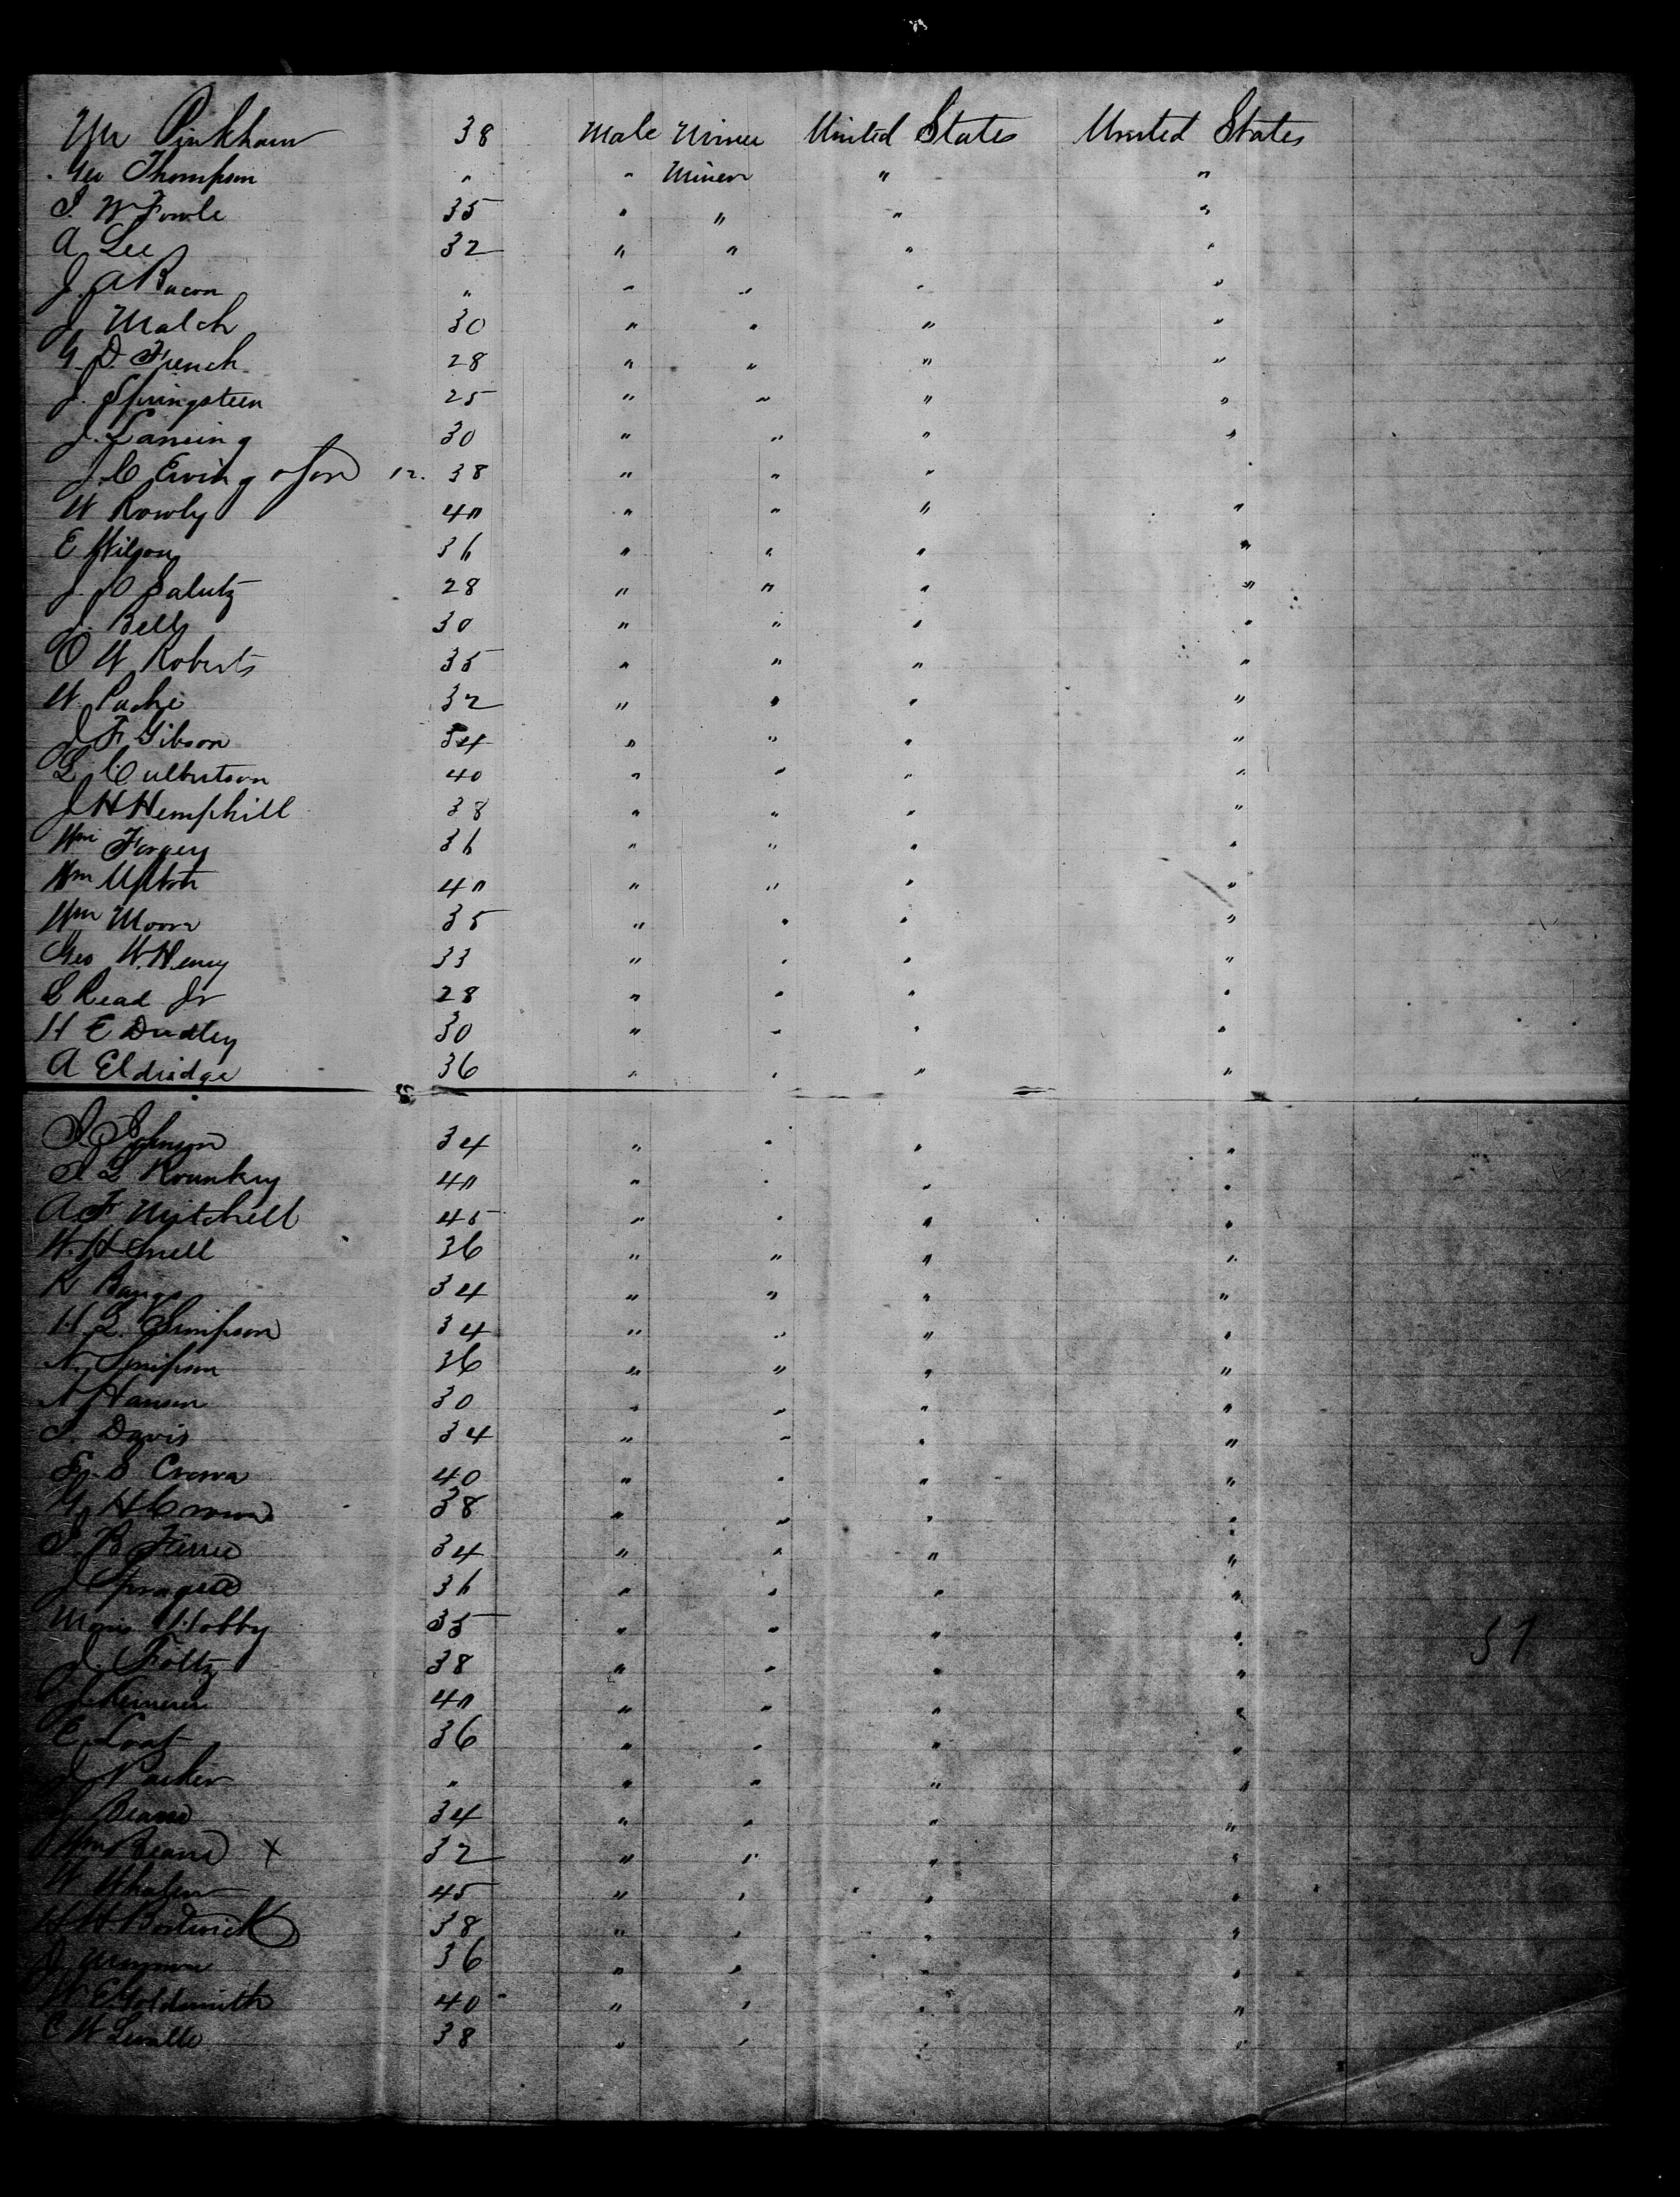 Wm Pinkham 38 Male Miner United States United States
Geo Thompson " " Miner " "
S. W Fowle 35 " " " "
A Lee 32 " " " "
J. A Bacon " " " " "
J. Malch 30 " " " "
G. D. French 28 " " " "
J. Springsteen 25 " " " "
J. Lansing 30 " " " "
J. C Erving & son 12. 38 " " " "
W Rowly 40 " " " "
E Wilson 36 " " " "
J. C Salutz 28 " " " "
J. Bell 30 " " " "
O W Roberts 35 " " " "
W. 32 " " " "
J F Gibson 34 " " " "
L. Culbertson 40 " " " "
J H Hemphill 38 " " " "
Wm Forgey 36 " " " "
Wm Upton 40 " " " "
Wm Moore 35 " " " "
Geo W. Henry 33 " " " "
L Read Jr 28 " " " "
H E Dudley 30 " " " "
A Eldridge 36 " " " "
S. Johnson 34 " " " "
40 " " " "
A F Mitchell 45 " " " "
W. H Snell 36 " " " "
R Bangs 34 " " " "
H L. Simpson 34 " " " "
N. Simpson 36 " " " "
N Hansen 30 " " " "
S. Davis 34 " " " "
40 " " " "
G H Crown 38 " " " "
S. B 34 " " " "
J Sprague 36 " " " "
Hobby 35 " " " "
J. Foltz 38 " " " " 57
J 40 " " " "
E. 36 " " " "
J Packer " " " " "
J. Beard 34 " " " "
Wm Beard X 32 " " " "
W Whalen 45 " " " "
H H Bostwick 38 " " " "
36 " " " "
W. E Goldsmith 40 " " " "
C W 38 " " " "